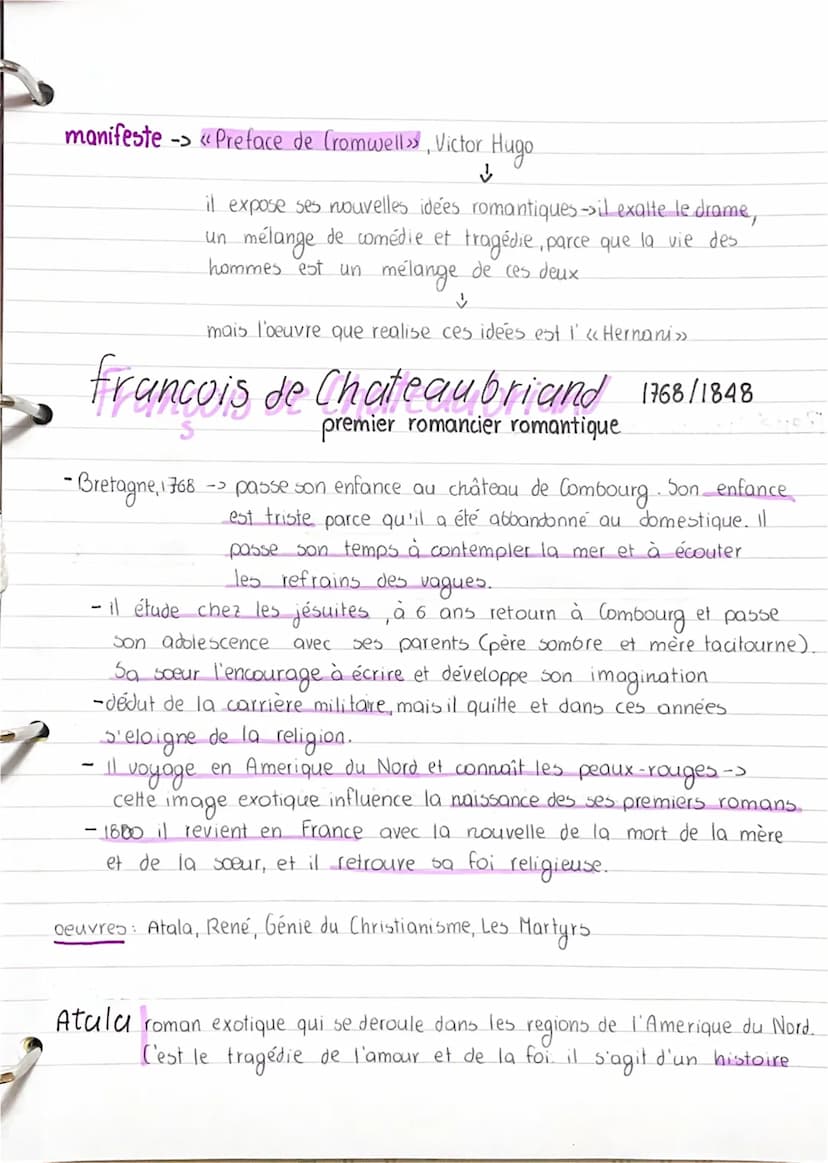 manifeste -> «Preface de Cromwell», Victor Hugo
il expose ses nouvelles idées romantiques->il exalte le drame,
un mélange de comédie et tragédie, parce que la vie des
hommes est un mélange de ces deux
mais l'oeuvre que realise ces ideés est l' «Hernani»
François de Chateaubriand 1768/1848
premier romancier romantique
- Bretagne, 1768 -> passe son enfance au château de Combourg. Son enfance
est triste parce qu'il a été abbandonné au domestique. Il
passe son temps à contempler la mer et à écouter
les refrains des vagues.
- il étude chez les jésuites, à 6 ans retourn à Combourg et passe
son adolescence avec ses parents (père sombre et mère tacitourne).
Sa sœur l'encourage à écrire et développe son imagination
-dédut de la carrière militaire, mais il quitte et dans ces années
s'eloigne de la religion.
- Il voyage en Amerique du Nord et connaît les peaux-rouges ->
cette image exotique influence la naissance des ses premiers romans.
- 1800 il revient en France avec la nouvelle de la mort de la mère
et de la sœur, et il retrouve sa foi religieuse.
oeuvres: Atala, René, Génie du Christianisme, Les Martyrs
Atala roman exotique qui se deroule dans les regions de l'Amerique du Nord.
C'est le tragédie de l'amour et de la foi. il s'agit d'un histoire